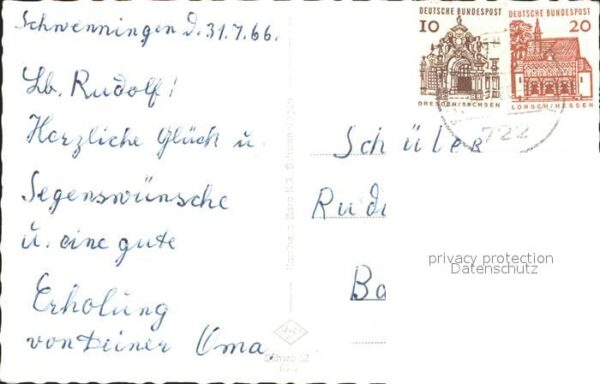 Schwenningen d. 31.7.66.
Lb. Rudolf!
Herzliche Glück u.
Segenswünsche
u. eine gute
Erholung
von Deiner Oma
DEUTSCHE BUNDESPOST
10
DRESDEN/SACHSEN
DEUTSCHE BUNDESPOST
20
LORSCH/HESSEN
722
Schüler
Rud
Ba
privacy protection
Datenschutz